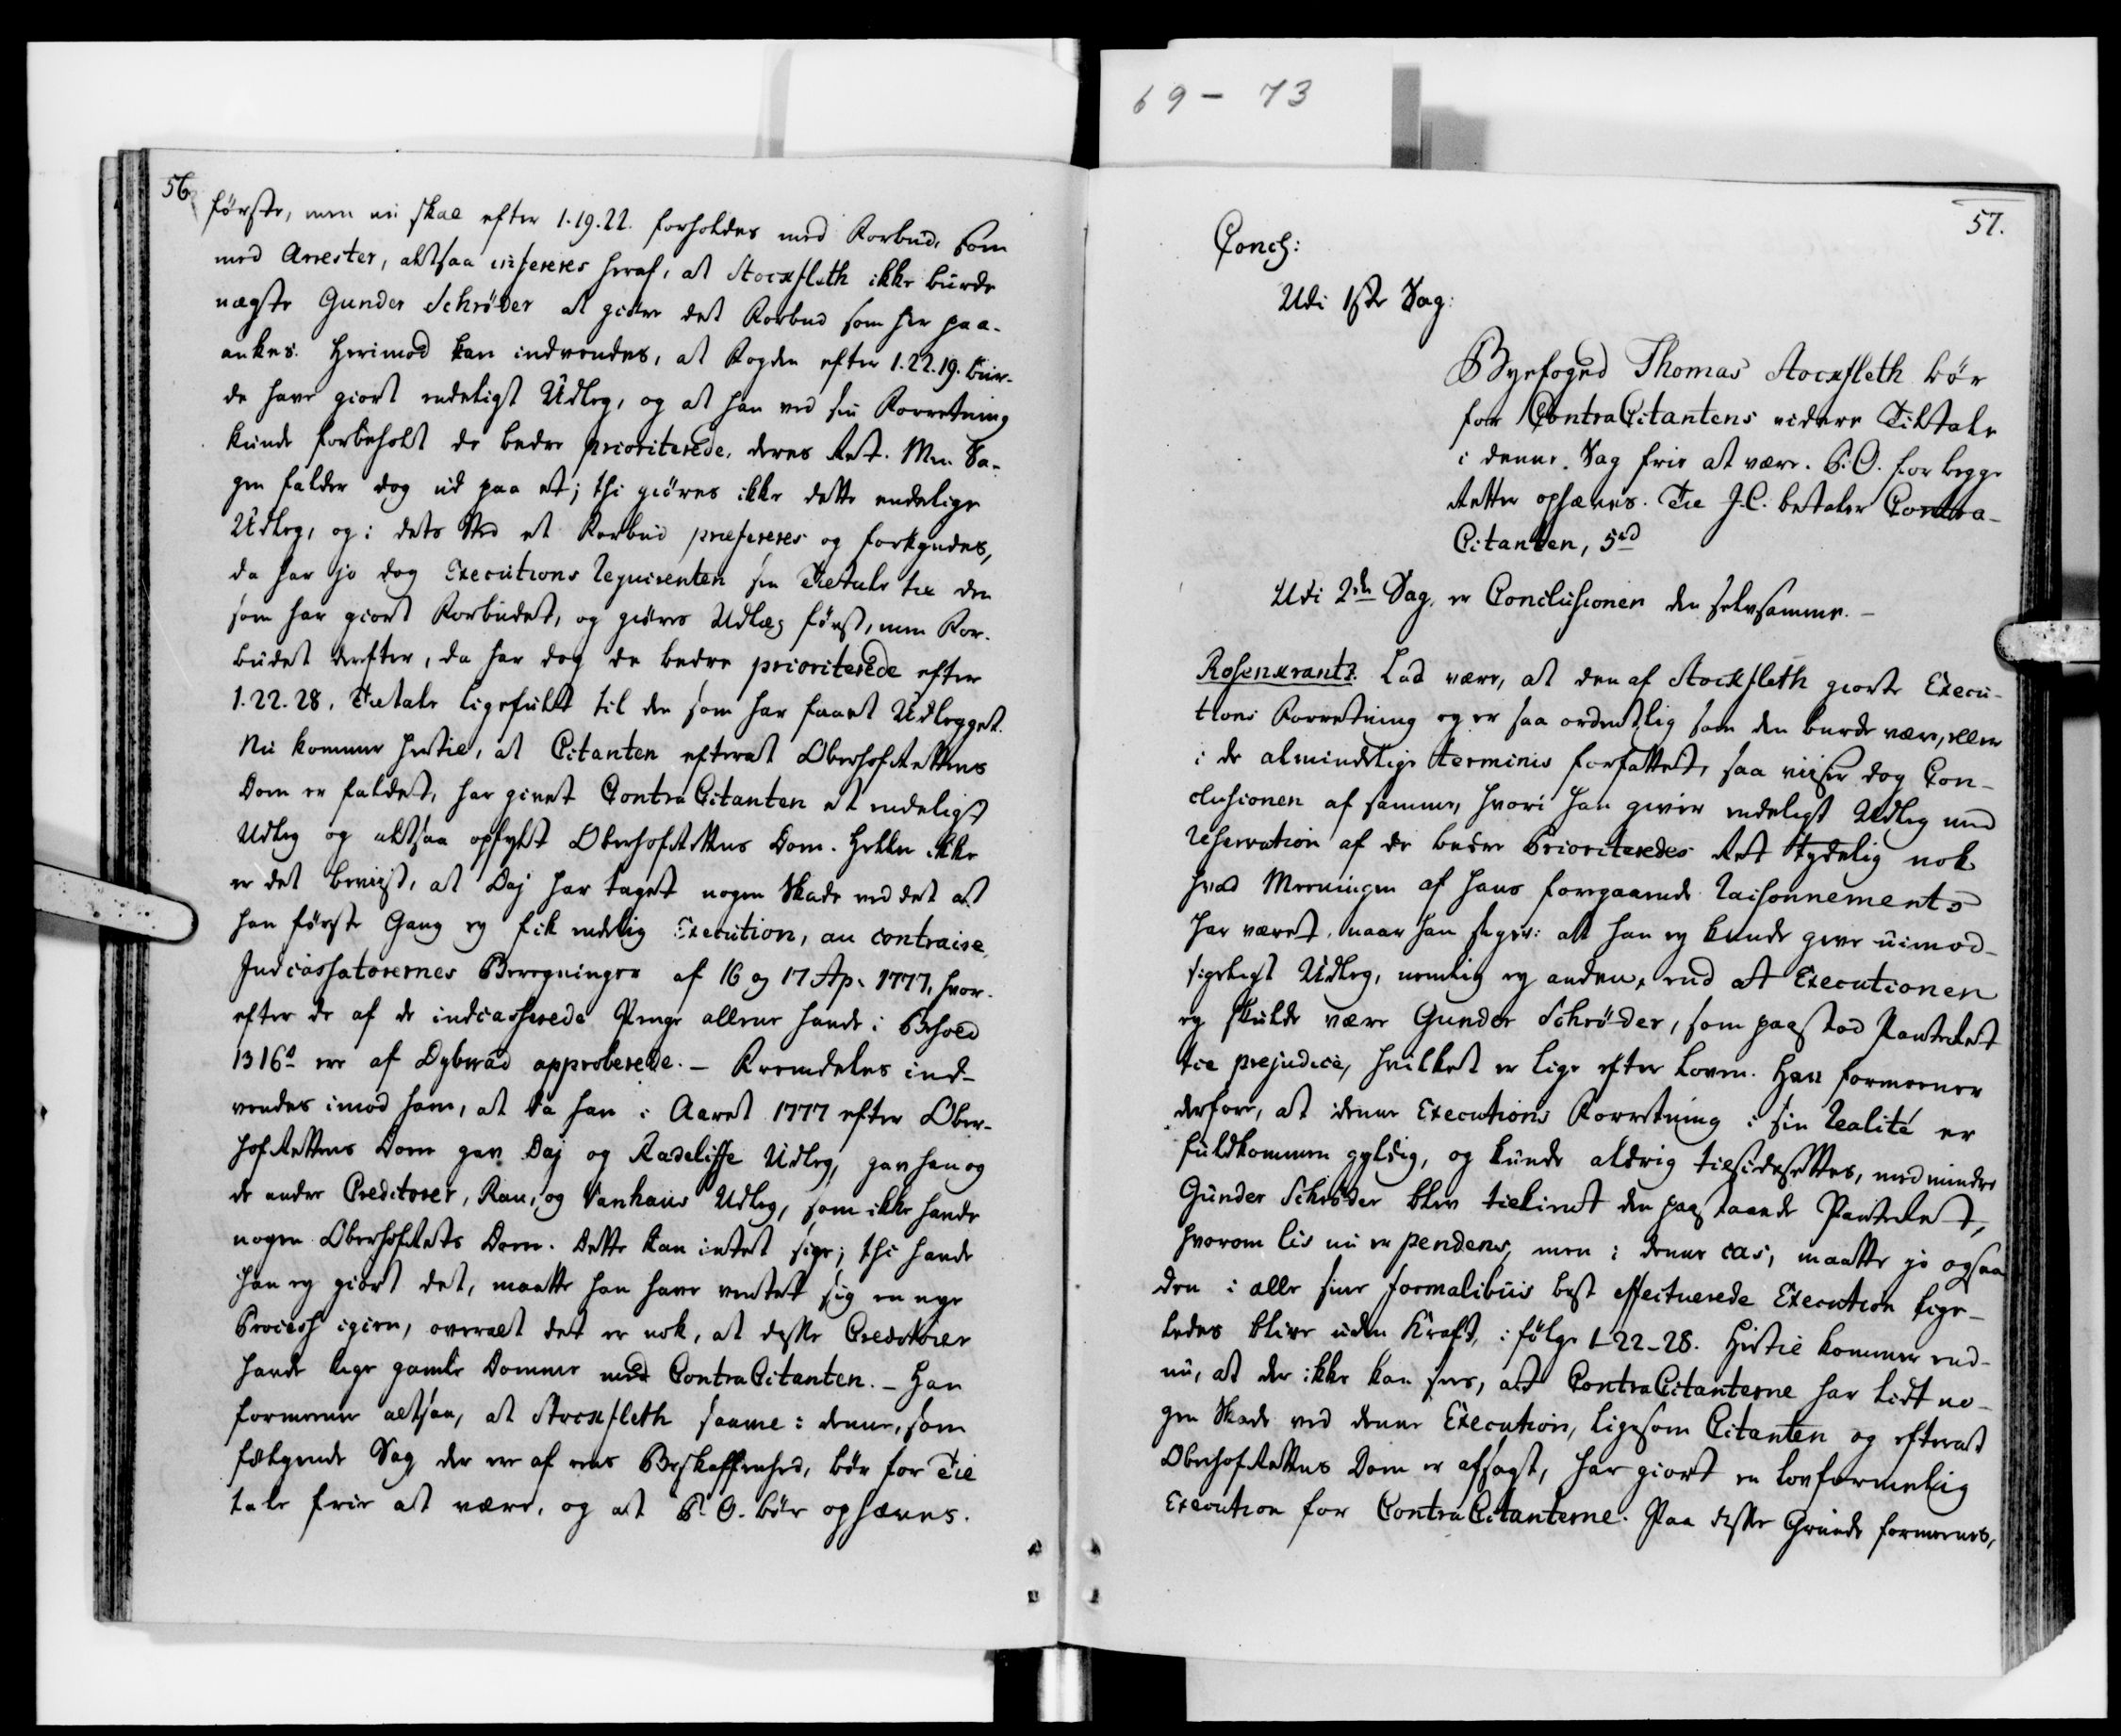 69 - 73
56.
første, men nu skal efter 1.19.22. forholdes med Forbud, som
med Arrester, altsaa infereres heraf, at Stockfleth ikke burde
nægte Gunder Schrøder at giøre det Forbud som her paa-
ankes. Herimod kan indvendes, at Fogden efter 1.22.19. bur-
de have giort endeligt Udleg, og at han ved sin Forretning
kunde forbeholt de bedre prioriterede, deres Ret. Men Sa-
gen falder dog ud paa et; thi giøres ikke dette endelige
Udleg, og i dets Sted et Forbud præfereres og forkyndes,
da har jo dog Executions Requirenten sin Tiltale til den
som har giort Forbudet, og giøres Udlæg først, men For-
budet derefter, da har dog de bedre prioriterede efter
1.22.28. Tiltale ligefuldt til den som har faaet Udlegget.
Nu kommer hertil, at Citanten efterat OberhofRettens
Dom er faldet, har givet ContraCitanten et endeligt
Udleg og altsaa opfyldt OberhofRettens Dom. Heller ikke
er det beviist, at Daj har taget nogen Skade ved det at
han første Gang ey fik endelig Execution, au contraire,
Indcassatorernes Beregninger af 16 og 17 Ap. 1777, hvor-
efter de af de indcasserede Penge allene havde i Behold
1316 ere af Dybvad approberede. — Fremdeles ind-
vendes imod ham, at da han i Aaret 1777 efter Ober-
hofRettens Dom gav Daj og Radeliffe Udleg, gav han og
de andre Creditorer, Rau, og Vanhaus Udleg, som ikke havde
nogen OberhofRets Dom. Dette kan intet sige; thi havde
han ey giort det, maatte han have ventet sig en nye
Process igien, overalt det er nok, at disse Creditorer
havde lige gamle Domme med ContraCitanten. — Han
formeener altsaa, at Stockfleth saavel i denne, som
følgende Sag, der ere af eens Beskaffenhed, bør for Til
tale frie at være, og at P. O. bør ophæves.
57.
Concl:
Udi 1ste Sag:
Byefoged Thomas Stockfleth bør
for ContraCitantens videre Tiltale
i denne Sag frie at være. P. O. for begge
Retter ophæves. Til J. C. betaler Contra-
Citanten, 5 rd
Udi 2den Sag, er Conclusionen den selvsamme. —
Rosenkrantz. Lad være, at den af Stockfleth giorte Execu-
tions Forretning ey er saa ordentlig som den burde være, eller
i de almindelige terminis forfattet, saa viiser dog Con-
clusionen af samme, hvori han giver endeligt Udleg med
reservation af de bedre Prioriteredes Ret tydelig nok
hvad Meeningen af hans foregaaende Raisonnements
har været, naar han siger: at han ey kunde give uimod-
sigeligt Udleg, nemlig ey anden, end at Executionen
ey skulde være Gunder Schrøder, som paastod PanteRet
til prejudice, hvilket er lige efter Loven. Han formeener
derfore, at denne Executions Forretning i sin Realité er
fuldkommen gyldig, og kunde aldrig tilsidesettes, med mindre
Gunder Schrøder blev tilkient den paastaaede PanteRet,
hvorom lis nu er pendens, men i denne cas, maatte jo ogsaa
den i alle sine formalibus best effectuerede Execution lige-
ledes blive uden Kraft, i følge 1-22-28. Hertil kommer end-
nu, at der ikke kan sees, at ContraCitanterne har lidt no-
gen Skade ved denne Execution, ligesom Citanten og efterat
OberhofRettens Dom er afsagt, har giort en lovformelig
Execution for ContraCitanterne. Paa disse Grunde formeenes,